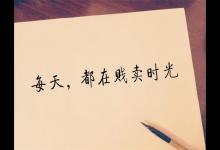 每天，都在贱卖时光